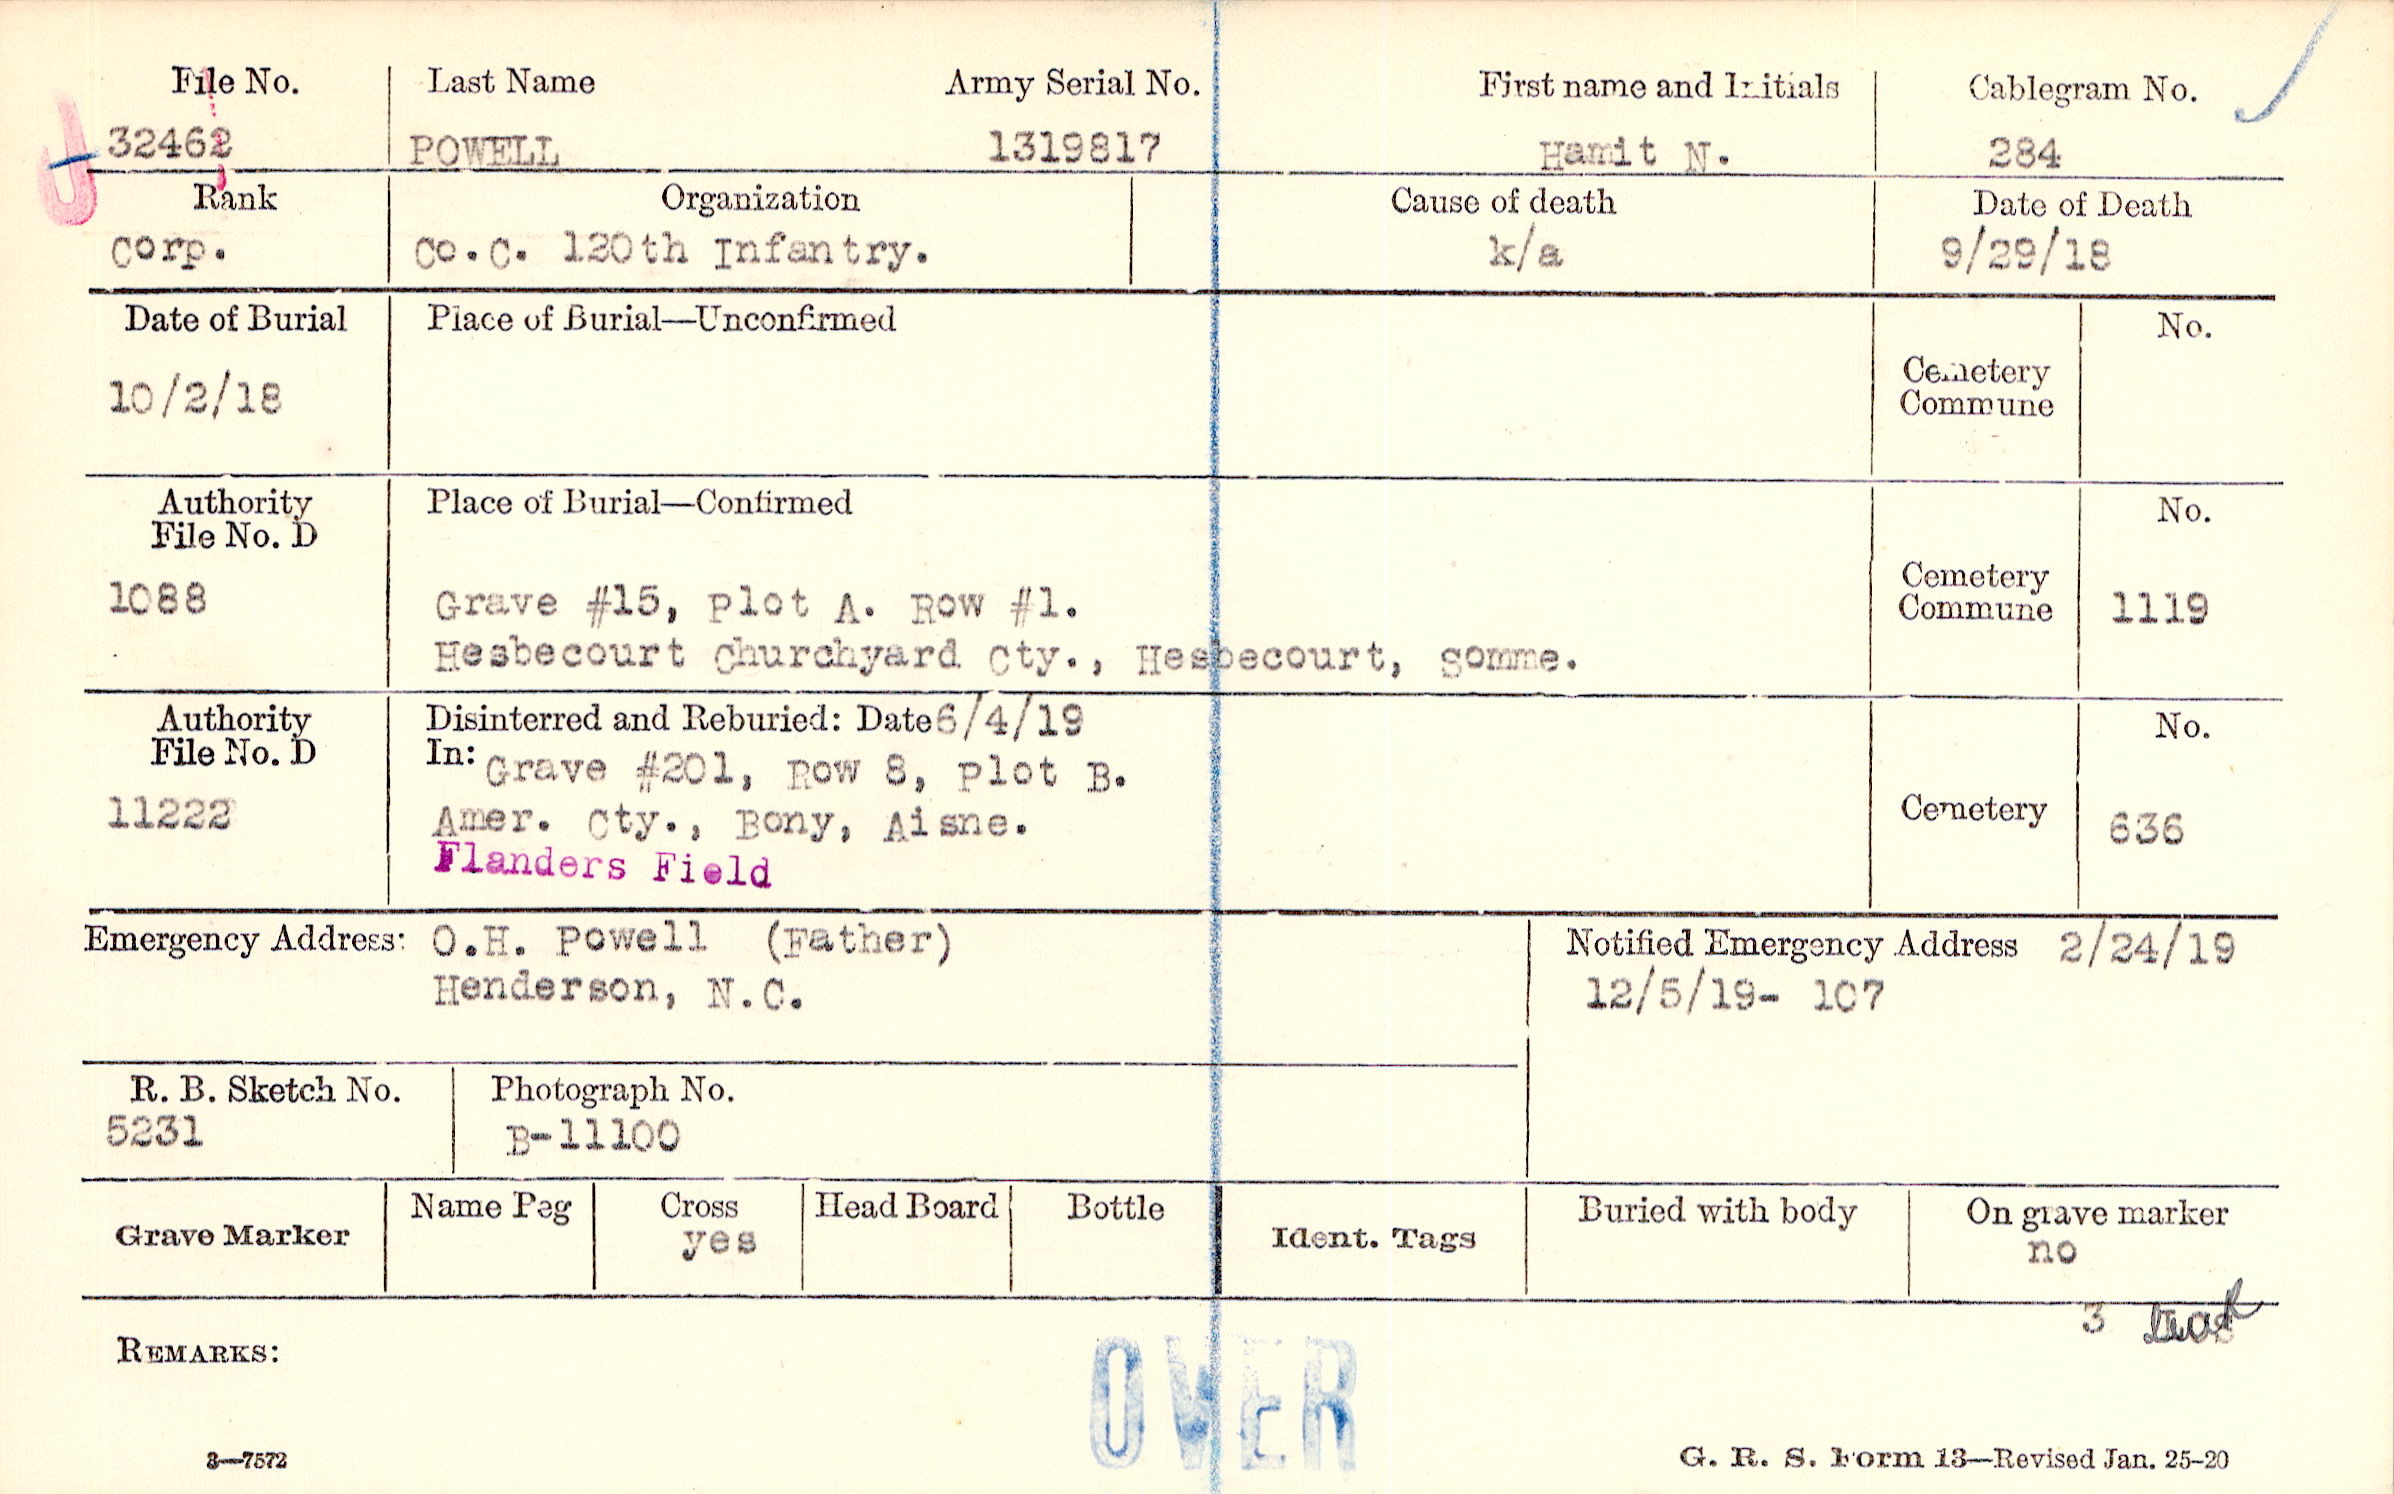 File No. Last Name Army Serial No. First name and Initials Cablegram No.
32462 POWELL 1319817 Hamit N. 284
Rank Organization Cause of death Date of Death
Corp. Co.C. 120th Infantry. k/a 9/29/18
Date of Burial Place of Burial—Unconfirmed No.
10/2/18 Cemetery
Commune
Authority Place of Burial—Confirmed No.
File No. D
1088 Grave #15, Plot A. Row #1. Cemetery
Commune 1119
Hesbecourt Churchyard Cty., Hesbecourt, Somme.
Authority Disinterred and Reburied: Date 6/4/19 No.
File No. D In: Grave #201, Row 8, Plot B.
11222 Amer. Cty., Bony, Aisne. Cemetery 636
Flanders Field
Emergency Address: O.H. Powell (Father) Notified Emergency Address 2/24/19
Henderson, N.C. 12/5/19- 107
R. B. Sketch No. Photograph No.
5231 B-11100
Grave Marker Name Peg Cross Head Board Bottle Ident. Tags Buried with body On grave marker
yes no
3
REMARKS:
OVER
3—7572 G. R. S. Form 13—Revised Jan. 25-20